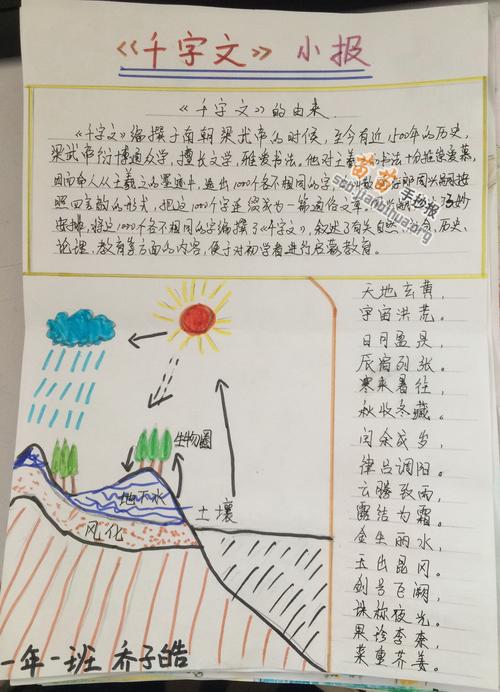 《千字文》小报
《千字文》的由来
《千字文》编撰于南朝梁武帝的时候，至今有近1500年的历史，
梁武帝衍博通众学，擅长文学，雅爱书法。他对王羲之的书法十分推崇爱慕，
因而命人从王羲之的墨迹中，选出1000个各不相同的字，
照四言韵的形式，把这1000个字连缀成为一篇通俗文章。巧妙
安排，将这1000个各不相同的字编撰了《千字文》，叙述了有关自然、历史、
论理、教育等方面的内容，便于对初学者进行启蒙教育。
苗苗手抄报
shouchaobao.org
天地玄黄，
宇宙洪荒。
日月盈昃，
辰宿列张。
寒来暑往，
秋收冬藏。
闰余成岁，
律吕调阳。
云腾致雨，
露结为霜。
金生丽水，
玉出昆冈。
剑号飞阙，
珠称夜光。
果珍李柰，
菜重芥姜。
生物圈
地下水
土壤
风化
一年一班 乔子皓